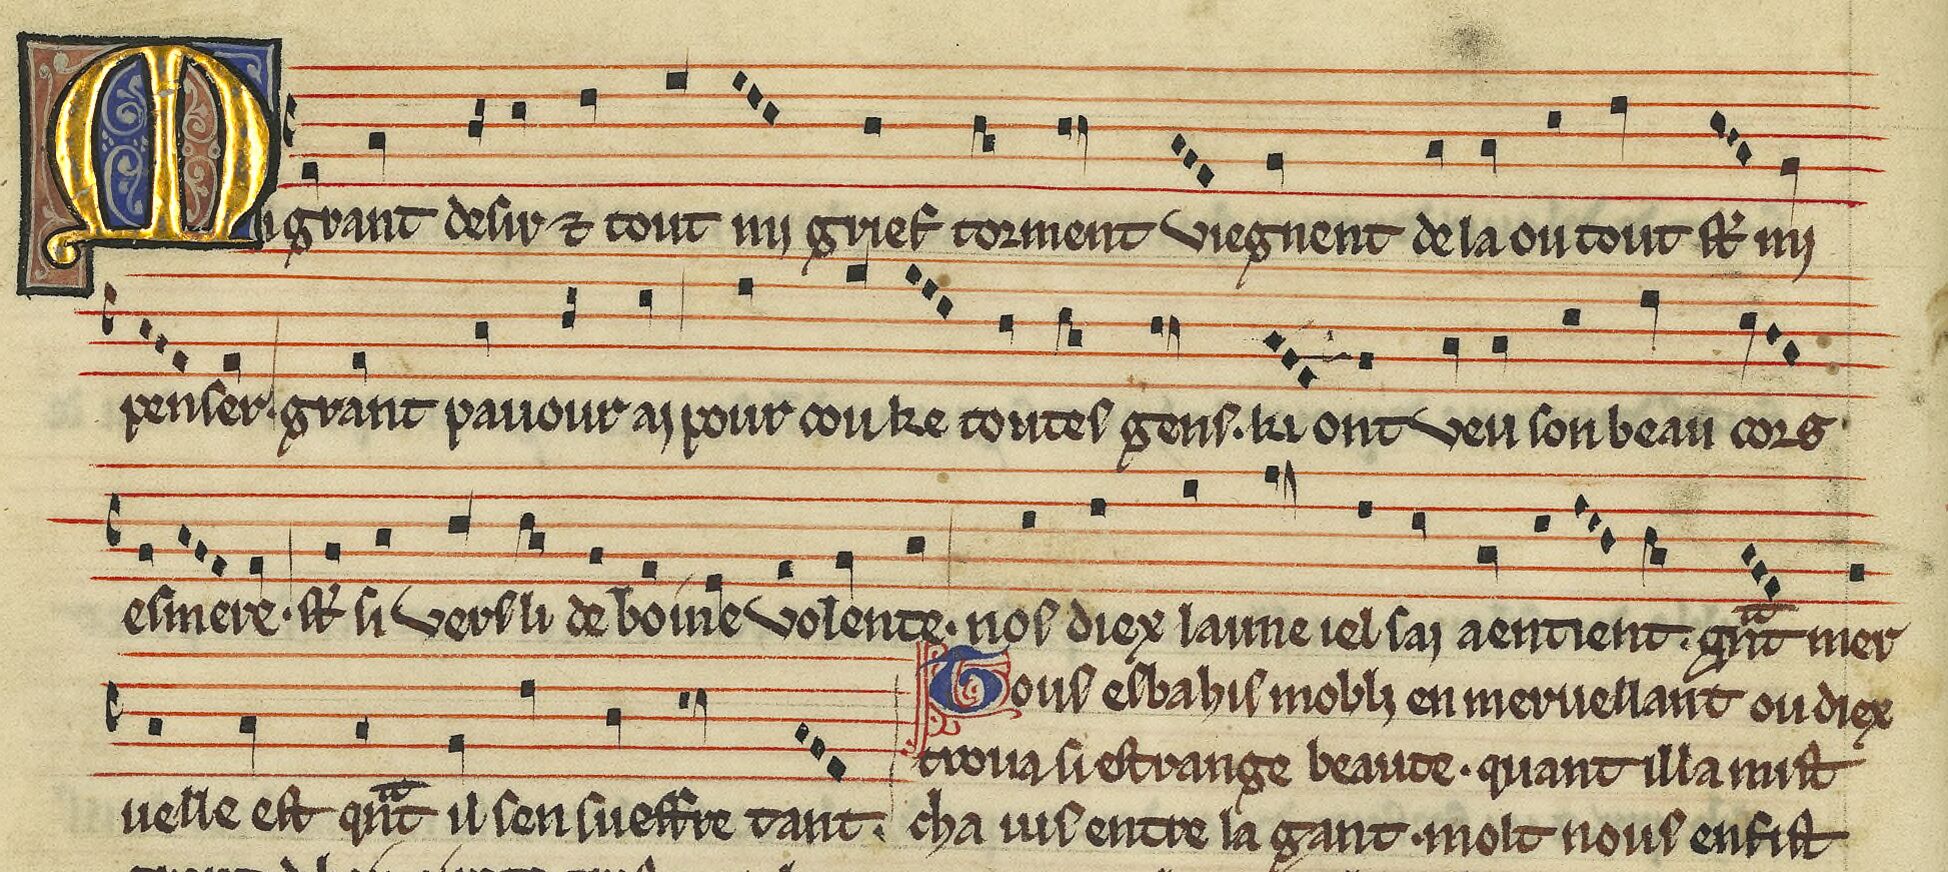 Mi grant desir ⁊ tout mi grief torment viegnent de la ou tout st̄ mi
penser. grant pauour ai pour cou ke toutes gens. ki ont veu son beau cors
esmere. st̄ si vers li de boine volente. nos diex laune iel sai aentient. gͣnt mer
uelle est qͣnt il sen sueffre tant.
Tous esbahis mobli en meruellant ou diex
troua si estrange beaute. quant illa mist
cha ius entre la gant. molt nous en fist